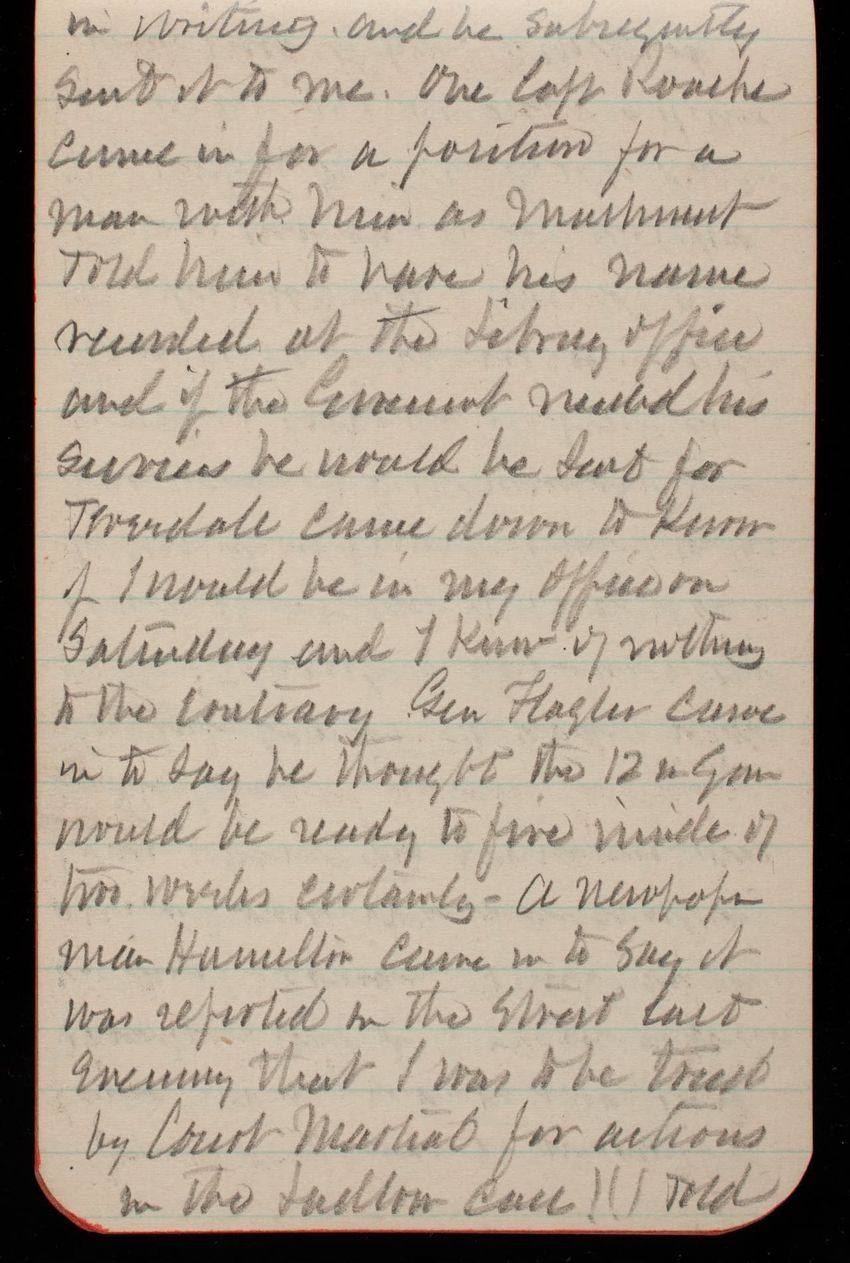 in writing. and he subsequently
sent it to me. One Capt Roache
came in for a position for a
man with him as Machinist
Told him to have his name
recorded at the Library office
and if the Government needed his
services he would be sent for
Truesdale came down to know
if I would be in my office on
Saturday and I know of nothing
to the contrary Gen Flagler came
in to say he thought the 12 in Gun
would be ready to fire inside of
two weeks certainly - A newspaper
man Hamilton came in to say it
was reported on the Street last
Evening that I was to be tried
by Court Martial for actions
in the Ludlow case !!! Told